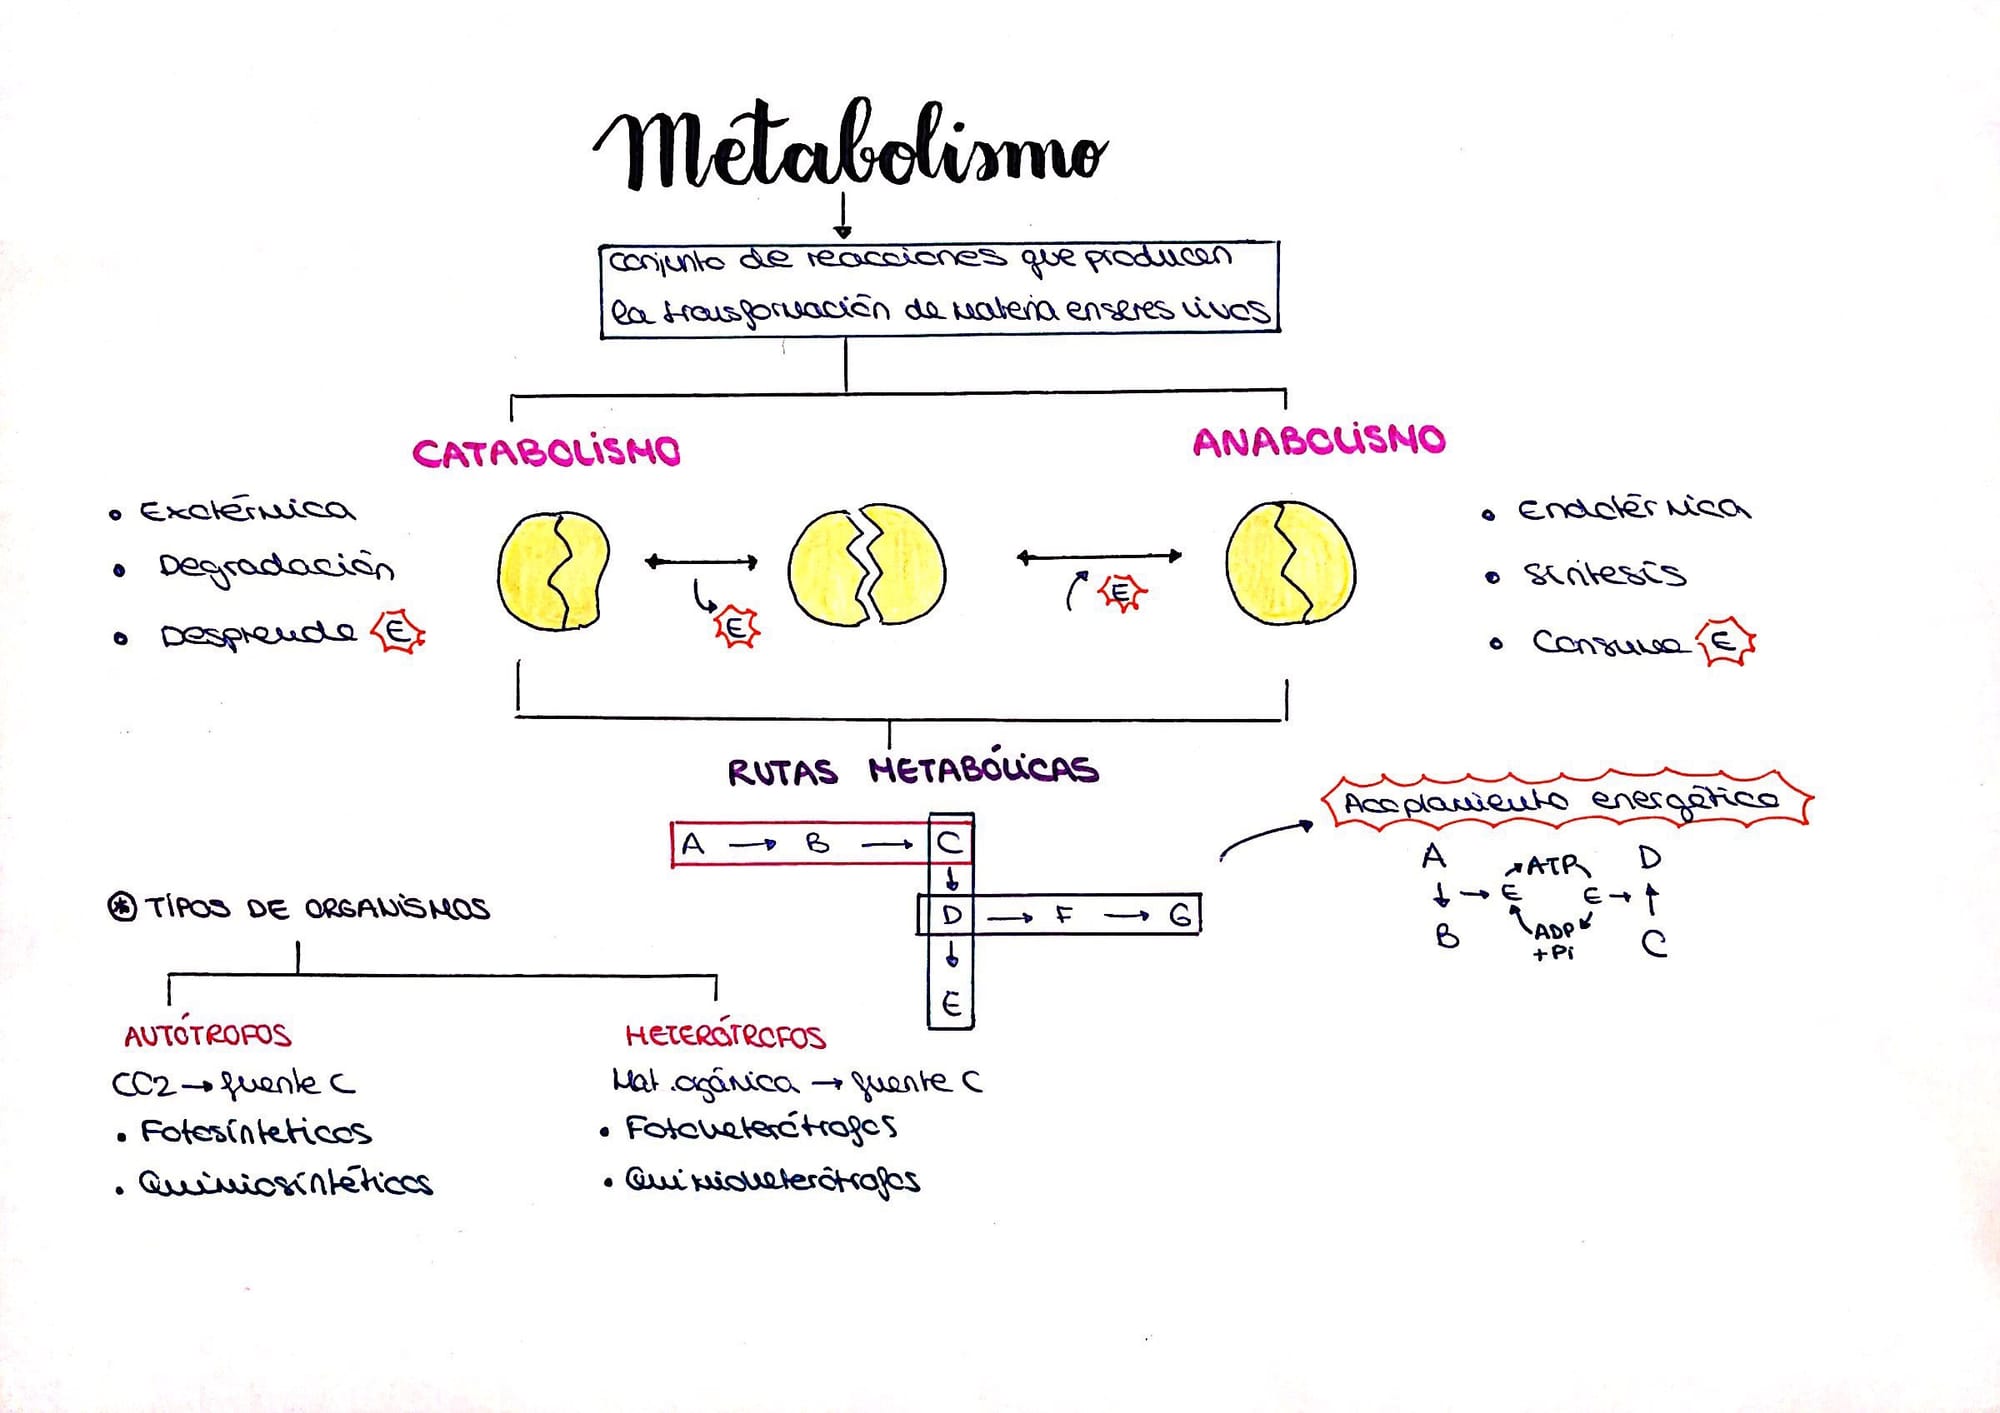 Metabolismo
conjunto de reacciones que producen
la transformación de materia en seres vivos
CATABOLISMO
ANABOLISMO
• Exotérmica
• Degradación
• Desprende E
E
E
• Endotérmica
• Síntesis
• Consume E
RUTAS METABÓLICAS
A → B → C
↓
D → F → G
↓
E
Acoplamiento energético
A ATP D
↓ → E E → ↑
B ADP C
+ Pi
* TIPOS DE ORGANISMOS
AUTÓTROFOS
CO2 → fuente C
• Fotosintéticos
• Quimiosíntéticos
HETERÓTROFOS
Mat. ogánica → fuente C
• Fotoheterótrofos
• Quimioheterótrofos